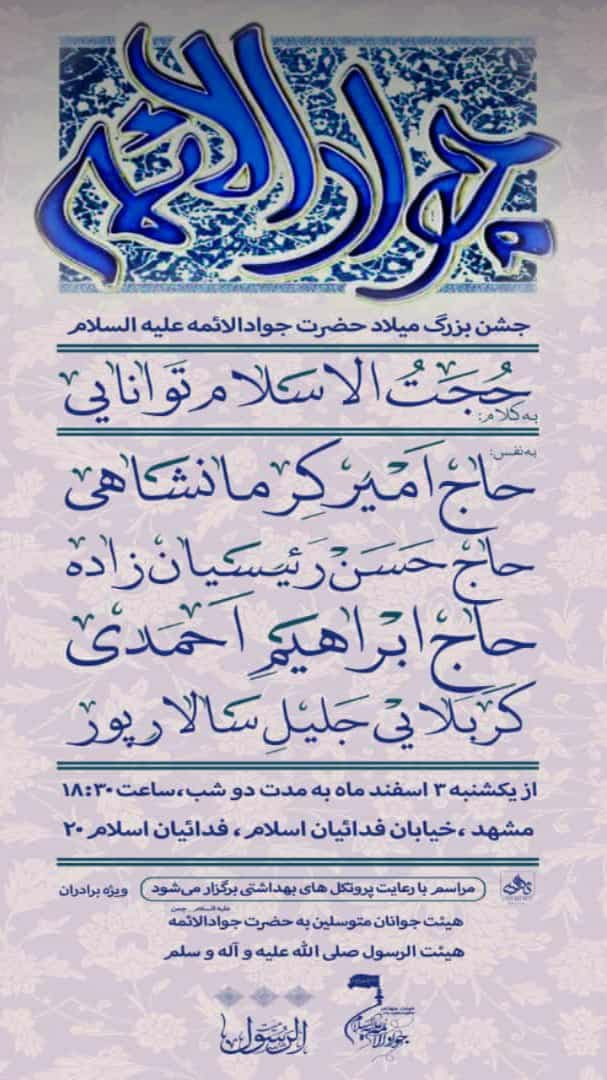 جوادالائمه
جشن بزرگ میلاد حضرت جوادالائمه علیه السلام
حُجَتُ الاسلام تَوانایی
به کلام:
به نفس:
حاج اَمیر کِرمانشاهی
حاج حَسَن رَئیسیان زاده
حاج ابراهیمِ اَحمَدی
کَربَلایی جَلیلِ سالارپور
از یکشنبه ۳ اسفند ماه به مدت دو شب،ساعت ۱۸:۳۰
مشهد ،خیابان فدائیان اسلام ، فدائیان اسلام ۲۰
مراسم با رعایت پروتکل های بهداشتی برگزار می‌شود
ویژه برادران
هیئت جوانان متوسلین به حضرت جوادالائمه علیه السلام
هیئت الرسول صلی الله علیه و آله و سلم
الرسول